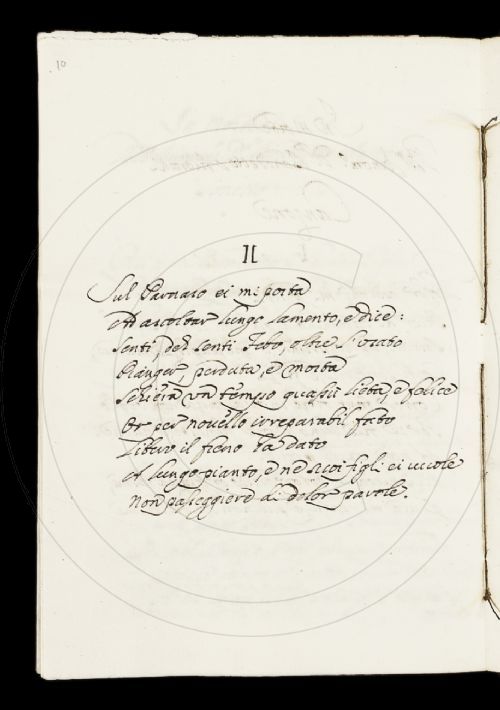 10
II
Sul Parnaso ei mi porta
Ad ascoltar lungo lamento, e dice:
Senti, deh senti Febo, oltre l'usato
Pianger perduta, e morta
Schiera un tempo quassù lieta, e felice
Or per novello irreparabil fato
Libero il freno ha dato
Al lungo pianto, e ne suoi figli ei vuole
Non passeggiere di dolor parole.